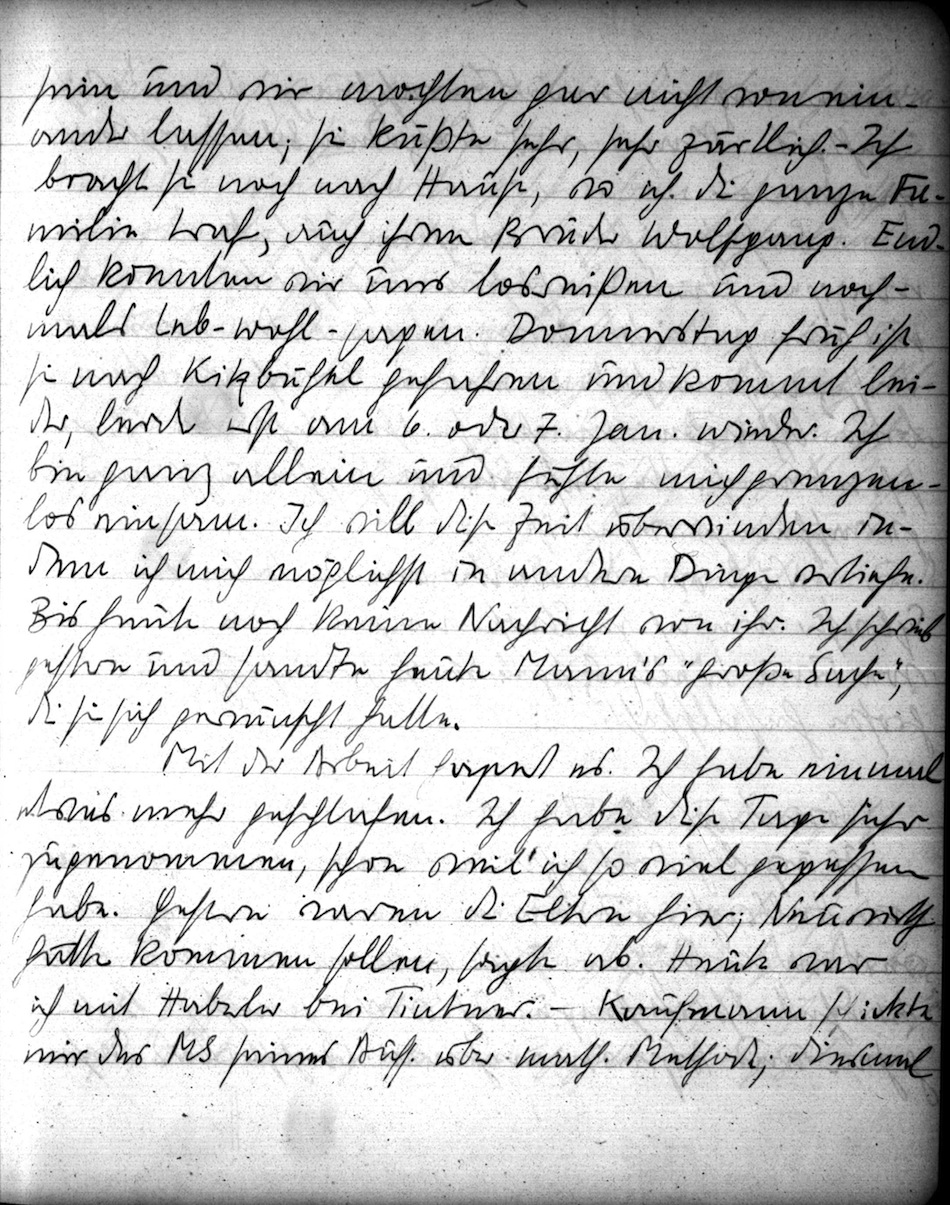 sein und wir mochten gar nicht von ein-
ander lassen; sie küßte sehr, sehr zärtlich. – Ich
bracht sie noch nach Hause, wo ich die ganze Fa-
milie traf, auch ihren Bruder Wolfgang. End-
lich konnten wir uns losreißen und noch-
mals Leb-wohl-sagen. Donnerstag früh ist
sie nach Kitzbühel gefahren und kommt lei-
der, leider erst am 6. oder 7. Jan. wieder. Ich
bin ganz allein und fühle mich grenzen-
los einsam. Ich will diese Zeit überwinden in-
dem ich mich möglichst in andere Dinge vertiefe.
Bis heute noch keine Nachricht von ihr. Ich schrieb
gestern und sandte heute Mann's "Große Sache",
die sie sich gewünscht hatte.
Mit der Arbeit es. Ich habe einmal
etwas mehr geschlafen. Ich habe diese Tage sehr
zugenommen, schon weil ich so viel gegessen
habe. Gestern waren die Eltern hier; Neurath
hätte kommen sollen, sagte ab. Heute war
ich mit Haberler bei Tintner. – Kaufmann schickte
mir das MS seines Aufs. über math. Methode; diesmal